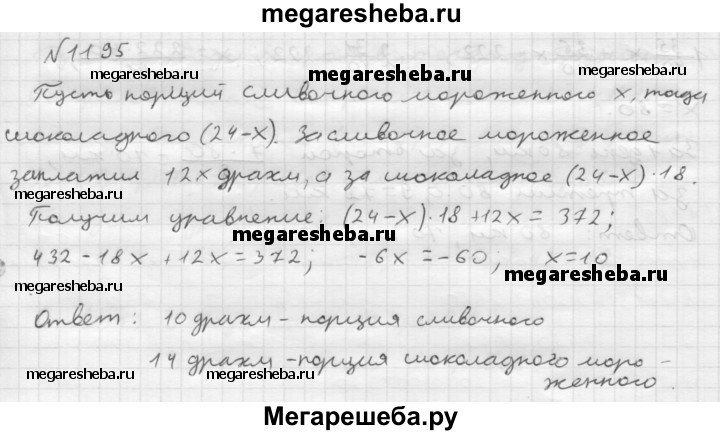 megaresheba.ru
№1195
megaresheba.ru
megaresheba.ru
Пусть порций сливочного мороженного x, тогда
шоколадного (24-x). За сливочное мороженное
megaresheba.ru
megaresheba.ru
заплатил 12x драхм, а за шоколадное (24-x)·18.
Получим уравнение: (24-x)·18+12x=372;
megaresheba.ru
432-18x+12x=372; -6x=-60; x=10
megaresheba.ru
Ответ: 10 драхм - порция сливочного
14 драхм - порция шоколадного моро-
megaresheba.ru
megaresheba.ru
женного.
Мегарешеба.ру